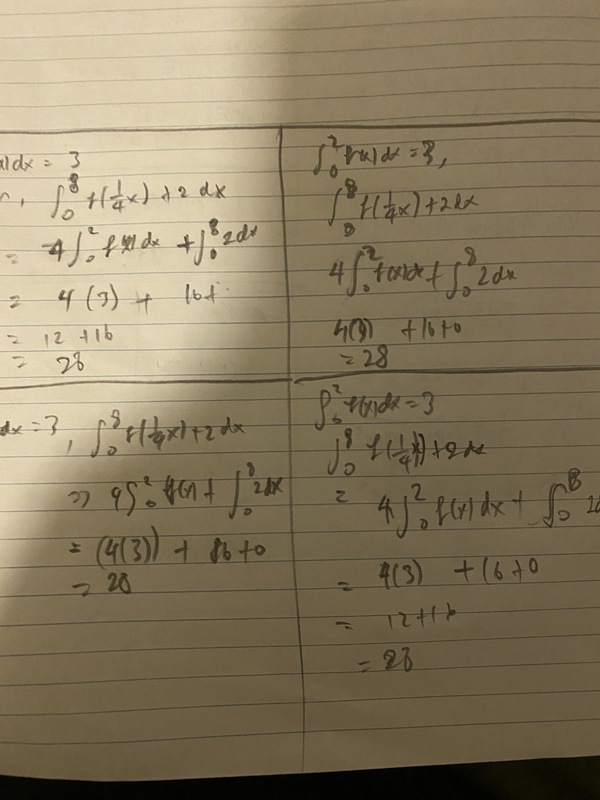 x)dx = 3
∫₀⁸ f(1/4x) + 2 dx
= 4∫₀² f(x)dx + ∫₀⁸ 2dx
= 4(3) + 16+
= 12 + 16
= 28
∫₀² f(x)dx = 3,
∫₀⁸ f(1/4x) + 2dx
4∫₀² f(x)dx + ∫₀⁸ 2dx
4(3) + 16 + 0
= 28
dx = 3, ∫₀⁸ f(1/4x) + 2dx
=> 4∫₀² f(x) + ∫₀⁸ 2dx
= (4(3)) + 16 + 0
= 28
∫₀² f(x)dx = 3
∫₀⁸ f(1/4x) + 2dx
= 4∫₀² f(x)dx + ∫₀⁸ 2d
= 4(3) + 16 + 0
= 12 + 16
= 28